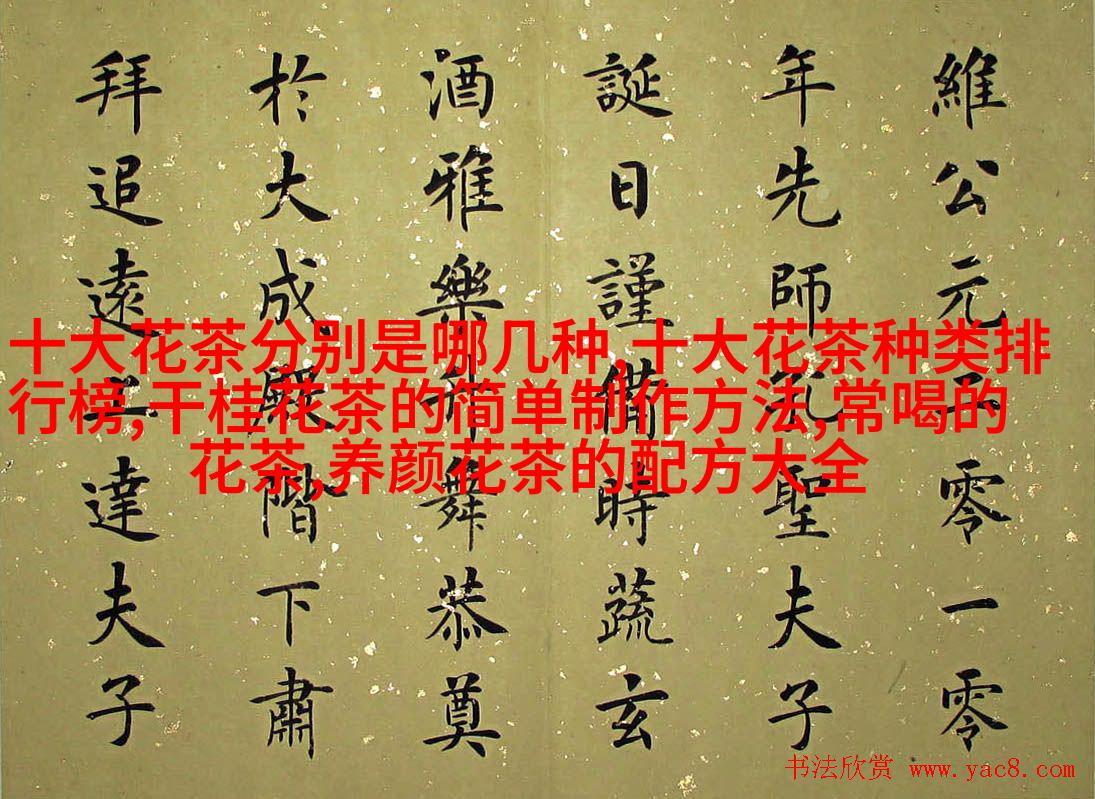 維公元二零一零
年先師孔聖夫子
誕日謹備時蔬玄
酒雅樂舞恭奠
於大成殿階下肅
拜追遠上達夫子
十大花茶分别是哪几种,十大花茶种类排
行榜,干桂花茶的简单制作方法,常喝的
花茶,养颜花茶的配方大全
书法欣赏 www.yac8.com